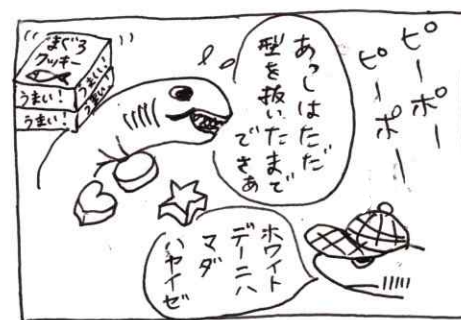 ピーポー
ピーポー
あっしはただ
型を抜いたまで
でさあ
まぐろ
クッキー
うまい！
うまい！
うまい！
うまい！
ホワイト
デーニハ
マダ
ハヤイゼ